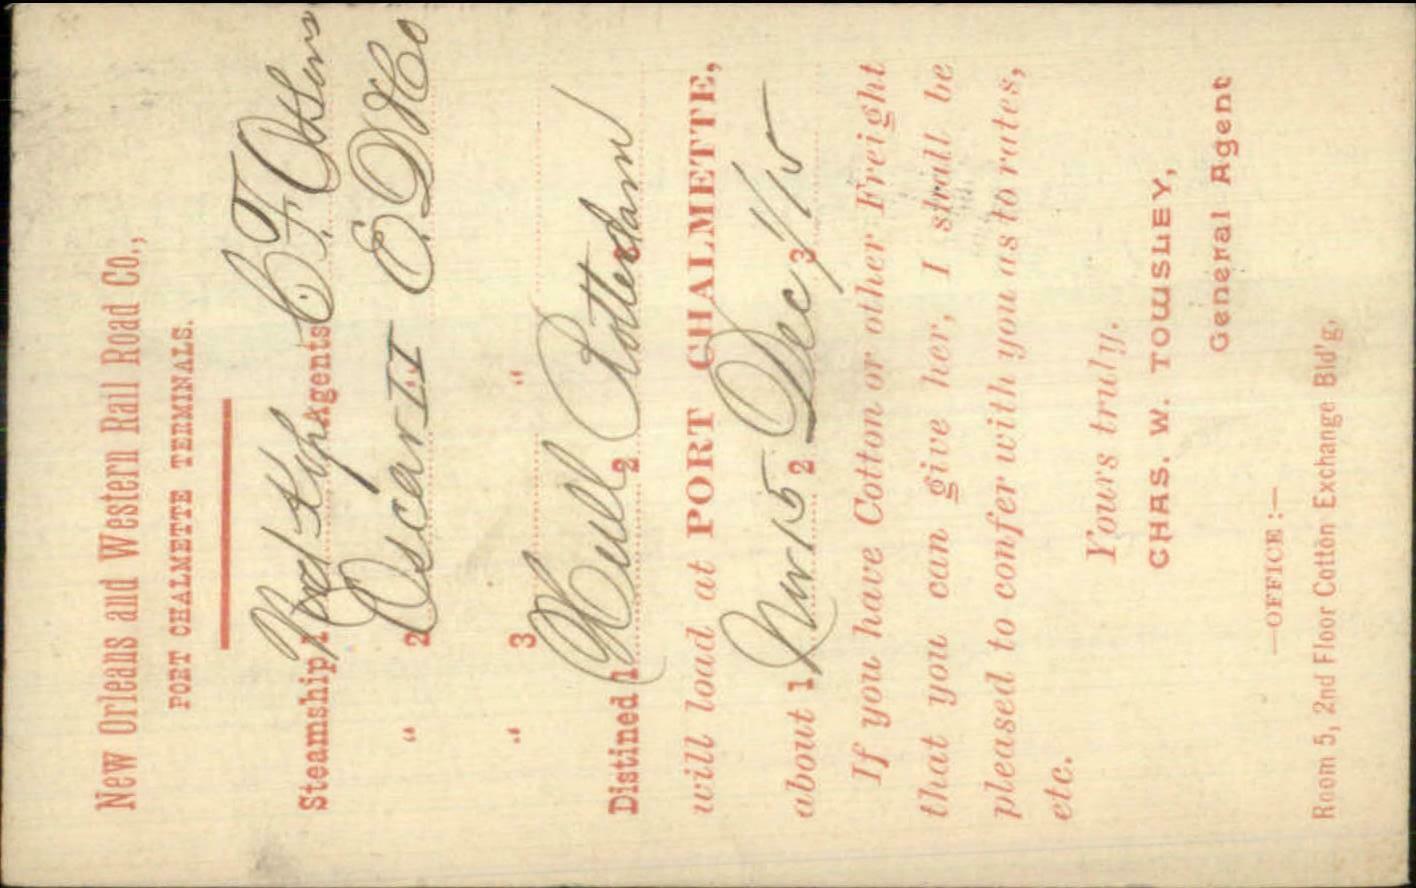 New Orleans and Western Rail Road Co.,
PORT CHALMETTE TERMINALS.
Steamship 1 Agents C. F.
" 2 Oscar II " E. D & Co
" 3 "
Distined 1 Hull 2 Rotterdam 3
will load at PORT CHALMETTE,
about 1 Nov 15 2 Dec 1/15 3
If you have Cotton or other Freight
that you can give her, I shall be
pleased to confer with you as to rates,
etc.
Yours truly.
CHAS. W. TOWSLEY,
General Agent
—OFFICE :—
Room 5, 2nd Floor Cotton Exchange Bld'g.